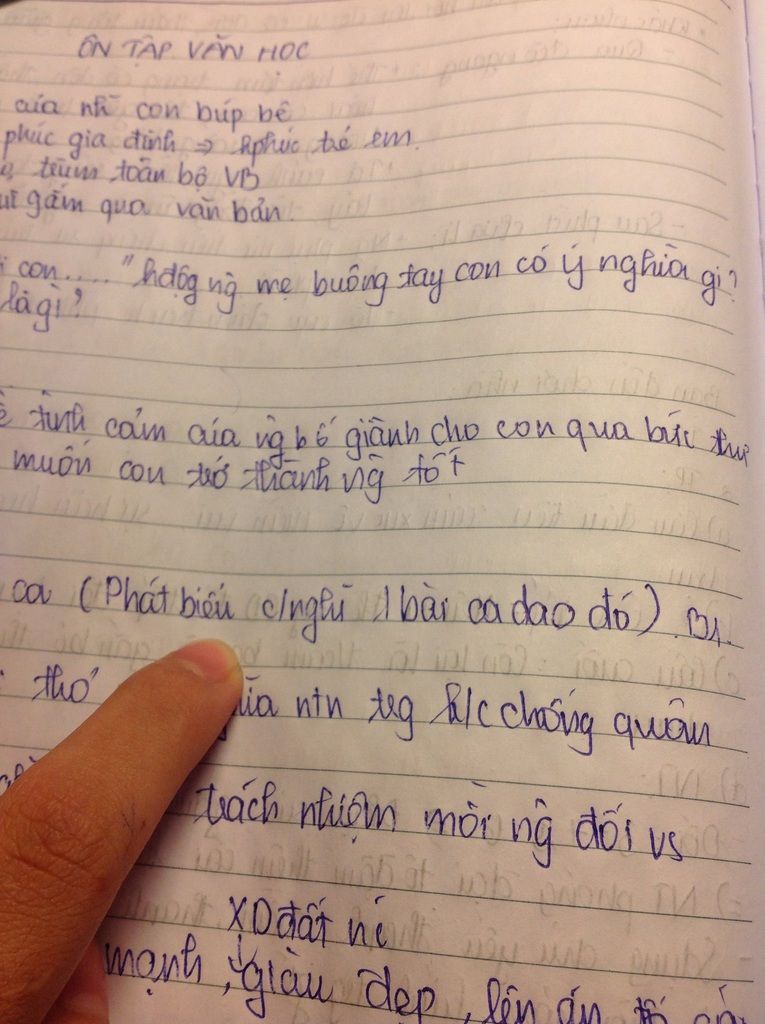 ÔN TẬP VĂN HỌC
của nh~ con búp bê
phúc gia đình => hphúc trẻ em.
trùm toàn bộ VB
gắm qua văn bản
con....." hđộg ng mẹ buông tay con có ý nghĩa gì?
là gì?
tình cảm của ng bố giành cho con qua bức thư
muốn con trở thành ng tốt
ca (Phát biểu c/nghĩ 1 bài ca dao đó). B1.
thơ ntn trg k/c chống quân
trách nhiệm mỗi ng đối vs
XD đất nc
mạnh, giàu đẹp, lên án tố